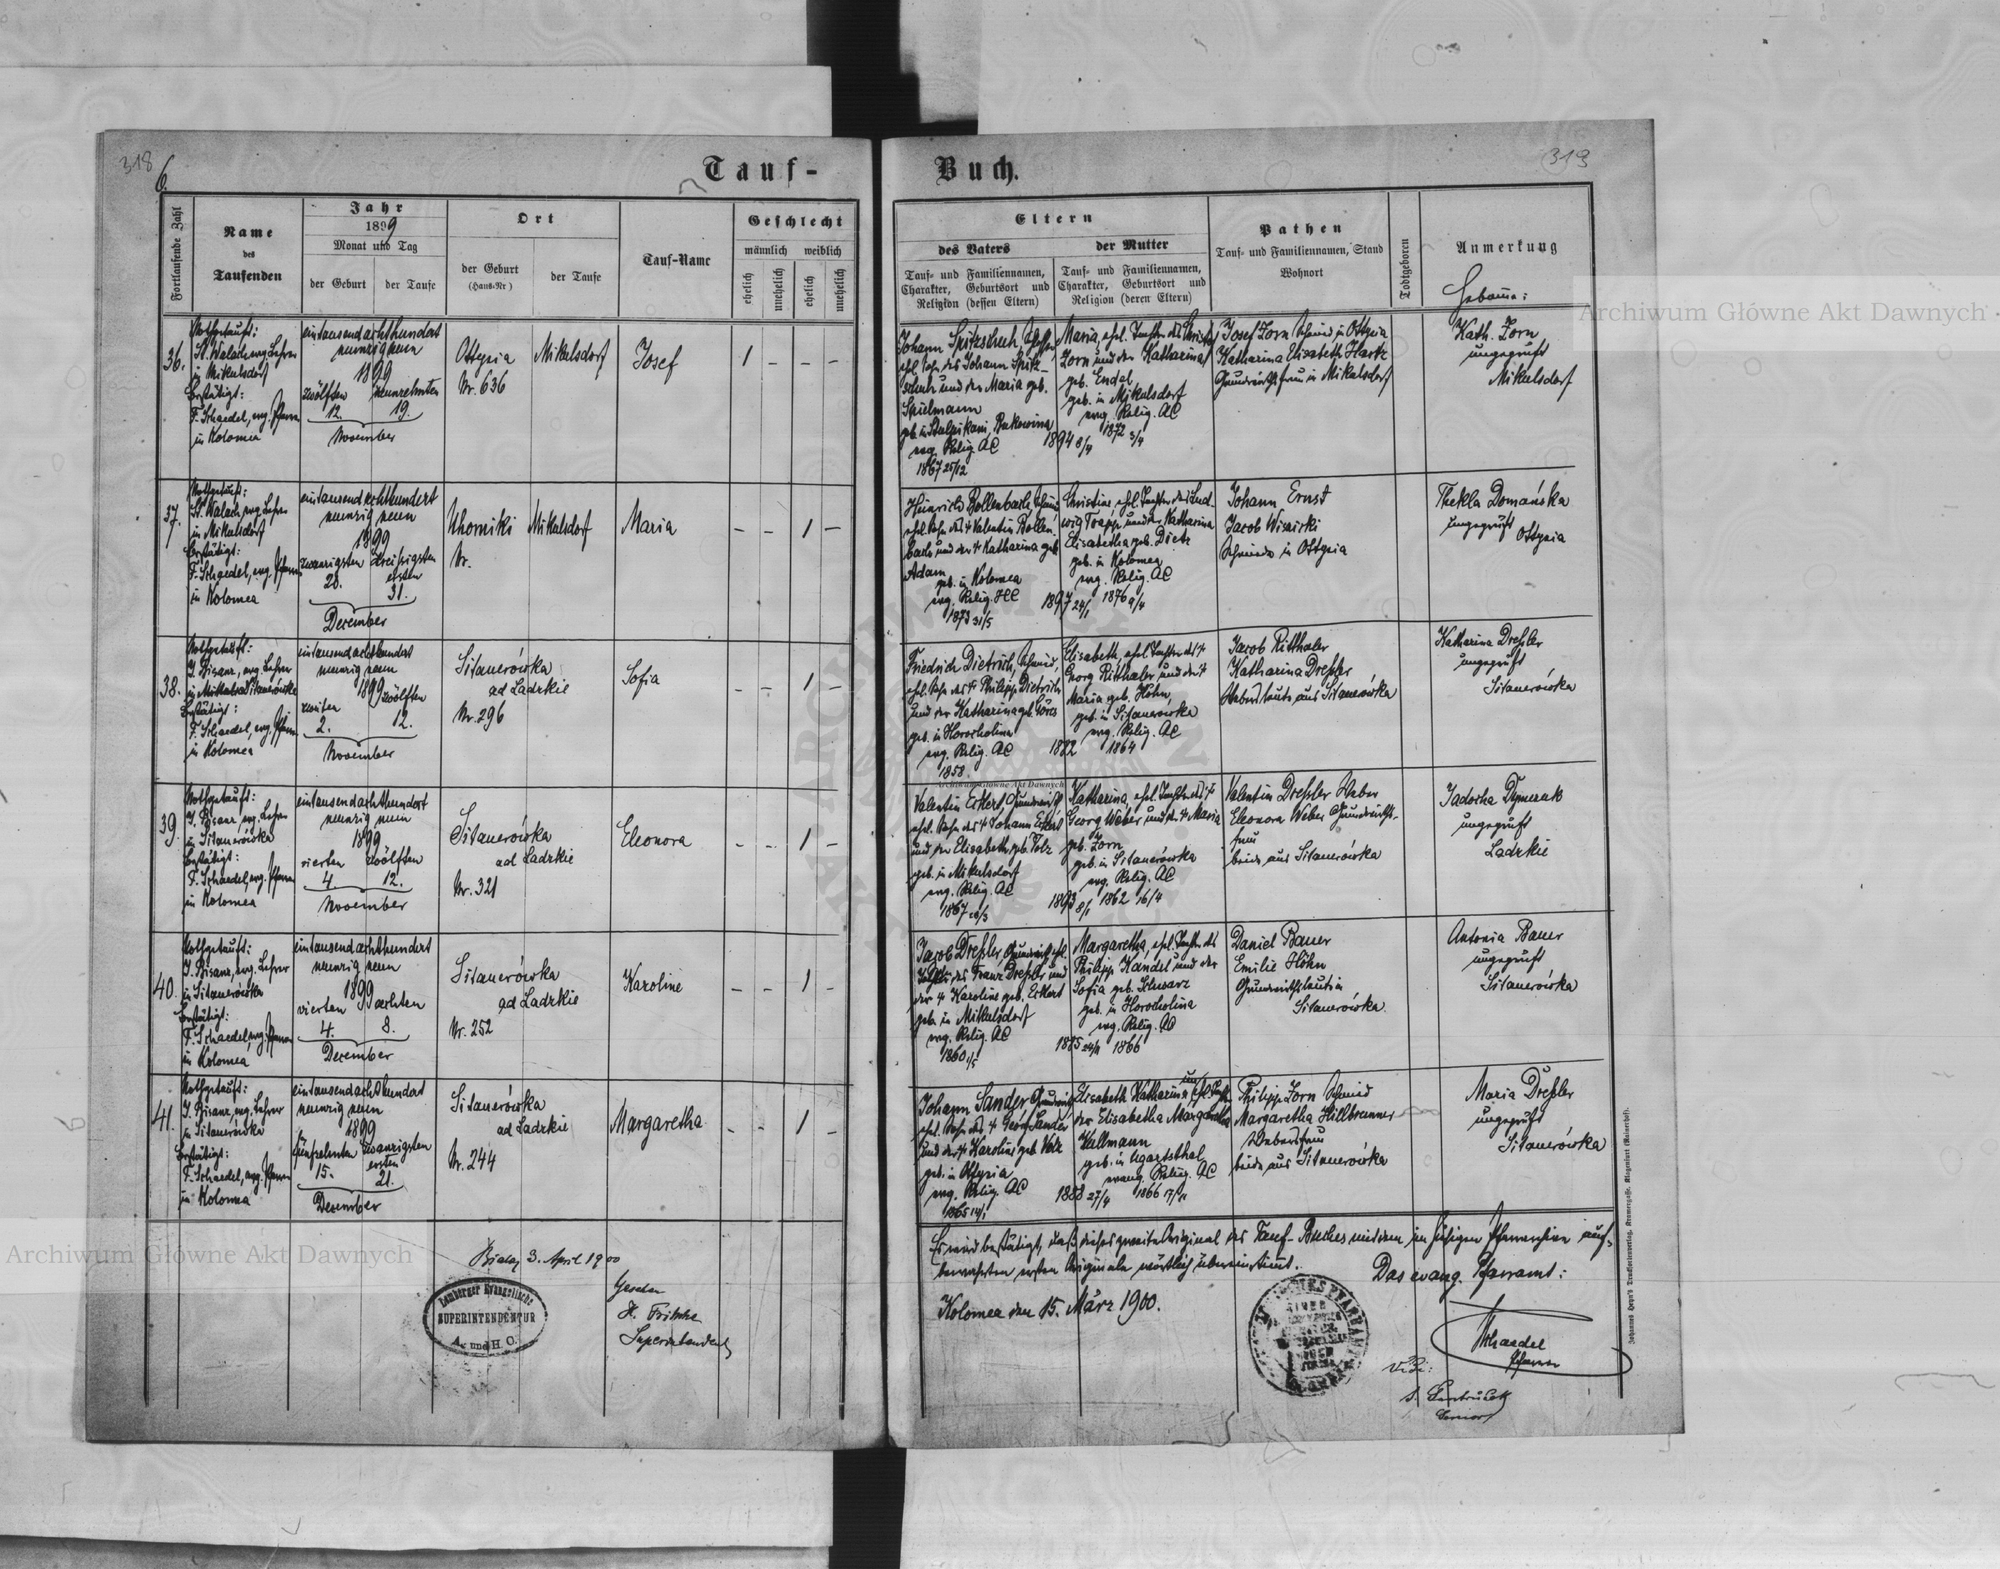 318
6.
Tauf-
Fortlaufende Zahl
Name
des
Taufenden
Jahr
1899
Monat und Tag
der Geburt
der Taufe
Ort
der Geburt
(Haus-Nr)
der Taufe
Tauf-Name
Geschlecht
männlich
weiblich
ehelich
unehelich
ehelich
unehelich
36.
Nothgetauft:
in Mikulsdorf
Bestätigt:
F. Schaedel, evg. Pfarrer
in Kolomea
eintausendachthundert
neunzig neun
1899
zwölften
neunzehnten
12.
19.
November
Ottynia
Nr. 636
Mikulsdorf
Josef
1 – – –
37.
Nothgetauft:
in Mikulsdorf
Bestätigt:
F. Schaedel, evg. Pfarrer
in Kolomea
eintausendachthundert
neunzig neun
1899
zwanzigsten
dreißigsten
ersten
20.
31.
December
Uhorniki
Nr.
Mikulsdorf
Maria
– – 1 –
38.
Nothgetauft:
J. Bisanz, evg. Lehrer
Bestätigt:
F. Schaedel, evg. Pfarrer
in Kolomea
eintausendachthundert
neunzig neun
1899
zweiten
zwölften
2.
12.
November
Sitauerówka
ad Ladzkie
Nr. 296
Sofia
– – 1 –
39.
Nothgetauft:
J. Bisanz, evg. Lehrer
in Sitauerówka
Bestätigt:
F. Schaedel, evg. Pfarrer
in Kolomea
eintausendachthundert
neunzig neun
1899
vierten
zwölften
4.
12.
November
Sitauerówka
ad Ladzkie
Nr. 321
Eleonora
– – 1 –
40.
Nothgetauft:
J. Bisanz, evg. Lehrer
in Sitauerówka
Bestätigt:
F. Schaedel, evg. Pfarrer
in Kolomea
eintausendachthundert
neunzig neun
1899
vierten
achten
4.
8.
December
Sitauerówka
ad Ladzkie
Nr. 252
Karoline
– – 1 –
41.
Nothgetauft:
J. Bisanz, evg. Lehrer
in Sitauerówka
Bestätigt:
F. Schaedel, evg. Pfarrer
in Kolomea
eintausendachthundert
neunzig neun
1899
fünfzehnten
zwanzigsten
ersten
15.
21.
December
Sitauerówka
ad Ladzkie
Nr. 244
Margaretha
– – 1 –
3. April 1900
Gesehen
Superintendent
Lemberger Evangelische
SUPERINTENDENTUR
A. und H. C.
Buch.
319
Eltern
des Vaters
Tauf- und Familiennamen,
Charakter, Geburtsort und
Religion (dessen Eltern)
der Mutter
Tauf- und Familiennamen,
Charakter, Geburtsort und
Religion (deren Eltern)
Pathen
Tauf- und Familiennamen, Stand
Wohnort
Todtgeboren
Anmerkung
Hebame:
Johann Spitzschuh
ehl. Sohn des Johann Spitz-
schuh und der Maria geb.
Spielmann
evg. Relig. AC
1867 25/12
1894 8/4
Maria, ehl. Tochter des Christof
Zorn und der Katharina
geb. Endel
geb. in Mikulsdorf
evg. Relig. AC
1872 3/4
Josef Zorn Schmied in Ottynia
Katharina Elisabeth Hartz
Grundwirthsfrau in Mikulsdorf
Kath. Zorn
ungeprüft
Mikulsdorf
Heinrich Bollenbach, Schmied
ehl. Sohn des † Valentin Bollen-
bach und der † Katharina geb
Adam
geb. in Kolomea
evg. Relig. HC
1873 31/5
1897 24/1
Christine, ehl. Tochter des Lud-
wig Trapp und der Katharina
Elisabetha geb. Dietz
geb. in Kolomea
evg. Relig. AC
1876 9/4
Johann Ernst
Jacob Wisnicki
Schmiede in Ottynia
Thekla Domańska
ungeprüft
Ottynia
Friedrich Dietrich, Schmied,
ehl. Sohn des † Philipp Dietrich
geb. in Horocholina
evg. Relig. AC
1858
1882
Elisabeth, ehl. Tochter des †
Georg Ritthaler und der †
Maria geb. Höhn,
geb. in Sitauerówka
evg. Relig. AC
1864
Jacob Ritthaler
Katharina Dreßler
Weberleute aus Sitauerówka
Katharina Dreßler
ungeprüft
Sitauerówka
Valentin Eckert, Grundwirth
ehl. Sohn des † Johann Eckert
und der Elisabeth geb. Volz
geb. in Mikulsdorf
evg. Relig. AC
1893 8/1
Katharina, ehl. Tochter des †
Georg Weber und der † Maria
geb. Zorn
geb. in Sitauerówka
evg. Relig. AC
1862 16/4
Valentin Dreßler Weber
Eleonora Weber Grundwirths-
frau
beide aus Sitauerówka
ungeprüft
Ladzkie
Jacob Dreßler, Grundwirth, ehl.
der † Karoline geb. Eckert
geb. in Mikulsdorf
evg. Relig. AC
1860 1/5
1885 24/11
Margaretha, ehl. Tochter des
Philipp Kandel und der
Sofia geb. Schwarz
geb. in Horocholina
evg. Relig. AC
1866
Daniel Bauer
Emilie Höhn
Grundwirthsleute in
Sitauerówka.
Antonia Bauer
ungeprüft
Sitauerówka
Johann Sander Grundwirth
ehl. Sohn des † Georg Sander
und der † Karoline geb. Volz
geb. in Ottynia
evg. Relig. AC
1865 14/1
1888 27/4
Elisabeth Katharina unehl. Tochter
der Elisabetha Margaretha
Kullmann
geb. in Ugartsthal
evang. Relig. AC
1866 17/11
Philipp Zorn Schmied
Margaretha Hillbrunner
Webersfrau
beide aus Sitauerówka
Maria Dreßler
ungeprüft
Sitauerówka
Es wird bestätigt, daß dieses zweite Original des Tauf-Buches mit dem im hiesigen Pfarrarchive auf-
bewahrten ersten Originale wörtlich übereinstimmt.
Kolomea den 15. März 1900.
Das evang. Pfarramt:
Schaedel
Pfarrer
Vidi:
Senior
Archiwum Główne Akt Dawnych
Archiwum Główne Akt Dawnych
Archiwum Główne Akt Dawnych